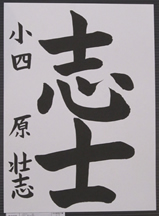 志士
小四 原 壮志